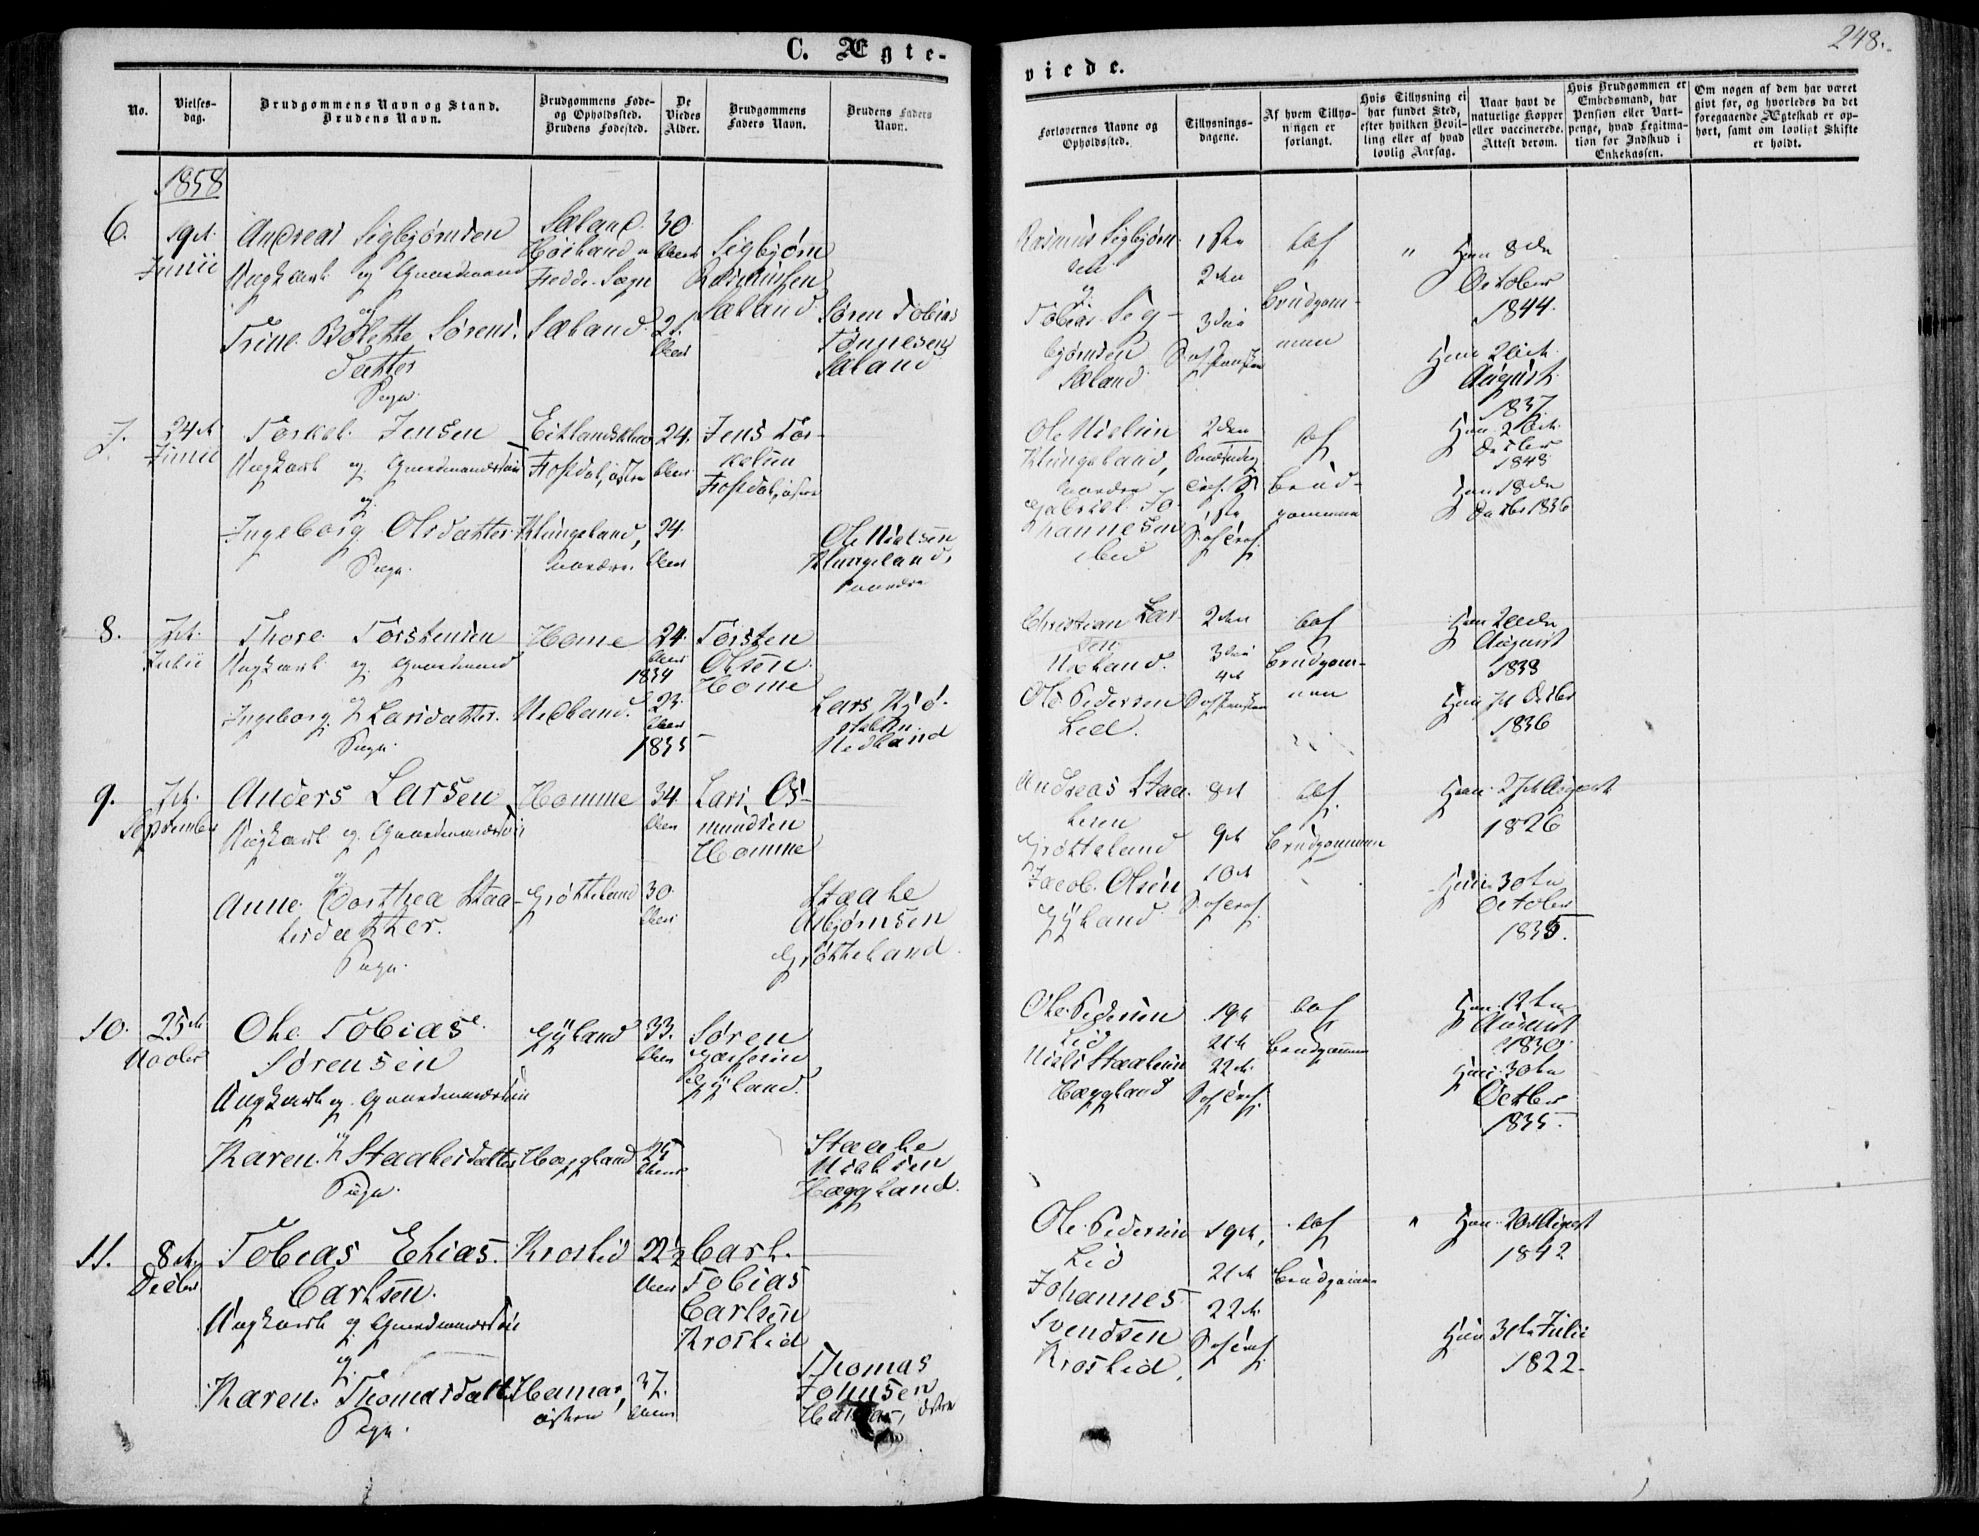 C. Ægte-
No.
Vielses-
dag.
Brudgommens Navn og Stand.
Brudens Navn.
Brudgommens Føde-
og Opholdssted.
Brudens Fødested.
De
Viedes
Alder.
Brudgommens
Faders Navn.
Brudens Faders
Navn.
1858
6.
19de
Junii
Andreas Sigbjørnsen
Ungkarl og Gaardmand
og
Trine Bolette Sørens-
datter
Pige.
Sæland
Høiland
Fedde Sogn
Sæland
30
Aar
21.
Aar
Sigbjørn
Rasmussen
Sæland
Søren Tobias
Tønnesen
Sæland
7.
24de
Junii
Torkel Jensen
Ungkarl og Gaardmandssøn
og
Ingeborg Olsdatter
Pige.
Josdal, østre
Klungeland,
nordre
24.
Aar
24.
Aar
Jens Tor-
kelsen
Josdal, østre
Ole Nielsen
Klungeland,
nordre
8.
7de
Julii
Thore Torstensen
Ungkarl og Gaardmand
og
Ingeborg Larsdatter.
Pige.
Home
Nedland.
24.
Aar
1834
23.
Aar
1835
Torsten
Olsen
Home
Lars Kjø-
Nedland
9.
7de
September
Anders Larsen
Ungkarl og Gaardmandssøn
og
Anne Dorthea Staa-
lesdatter.
Pige.
Homme
Grøtteland
34
Aar
30.
Aar
Lars Os-
mundsen
Homme
Staale
Asbjørnsen
Grøtteland
10.
25de
Novbr
Ole Tobias
Sørensen
Ungkarl og Gaardmandssøn
og
Karen Staalesdatter
Pige.
Gyland
Hæggland
33.
Aar
25
Aar
Søren
Gyland.
Staale
Nielsen
Hæggland.
11.
8de
Decbr
Tobias Elias
Carlsen.
Ungkarl og Gaardmandssøn
og
Karen Thomasdatt.
Pige.
Kroslid
Hamar,
østre
22½
Aar
37.
Aar
Carl
Tobias
Carlsen
Kroslid
Thomas
Johnsen
Hamar, østre
248.
viede.
Forlovernes Navne og
Opholdssted.
Tillysnings-
dagene.
Af hvem Tillys-
ningen er
forlangt.
Hvis Tillysning ei
har fundet Sted,
efter hvilken Bevil-
ling eller af hvad
lovlig Aarsag.
Naar havt de
naturlige Kopper
eller vaccinerede.
Attest derom.
Hvis Brudgommen er
Embedsmand, har
Pension eller Vart-
penge, hvad Legitma-
tion for Indskud i
Enkekassen.
Om nogen af dem har været
givt før, og hvorledes da det
foregaaende Ægteskab er op-
hørt, samt om lovligt Skifte
er holdt.
Rasmus Sigbjørn-
sen
og
Tobias Sig-
bjørnsen
Sæland
1ste
2den
3die
af
Brudgom-
men
"
Han 8de
October
1844.
Hun 20de
August
1837.
Ole Nielsen
Klungeland,
nordre
Gabriel Jo-
hannesen
ibid
2den
af
Brud-
gommen
Han 20de
Decbr
1848
Hun 18de
Decbr 1836
Christian Lar-
sen
Nedland.
Ole Pedersen
Lid.
2den
3die
4de
af
Brudgom-
men
Han
August
1838
Hun 7de Octbr
1836
Andreas Staa-
lesen
Grøtteland
Jacob Olsen
Gyland
8de
9de
10de
af
Brudgommen
Han 27de August
1826
Hun 30te
October
1835.
Ole Pedersen
Lid
Niels Staalesen
Hæggland
19de
21de
22de
af
Brudgommen
Han 12te
August
1830.
Hun 30te
Octbr
1835.
Ole Pedersen
Lid
Johannes
Svendsen
Kroslid.
19de,
21de
22de
af
Brudgommen
"
Han 20de August
1842
Hun 31te Julii
1822.